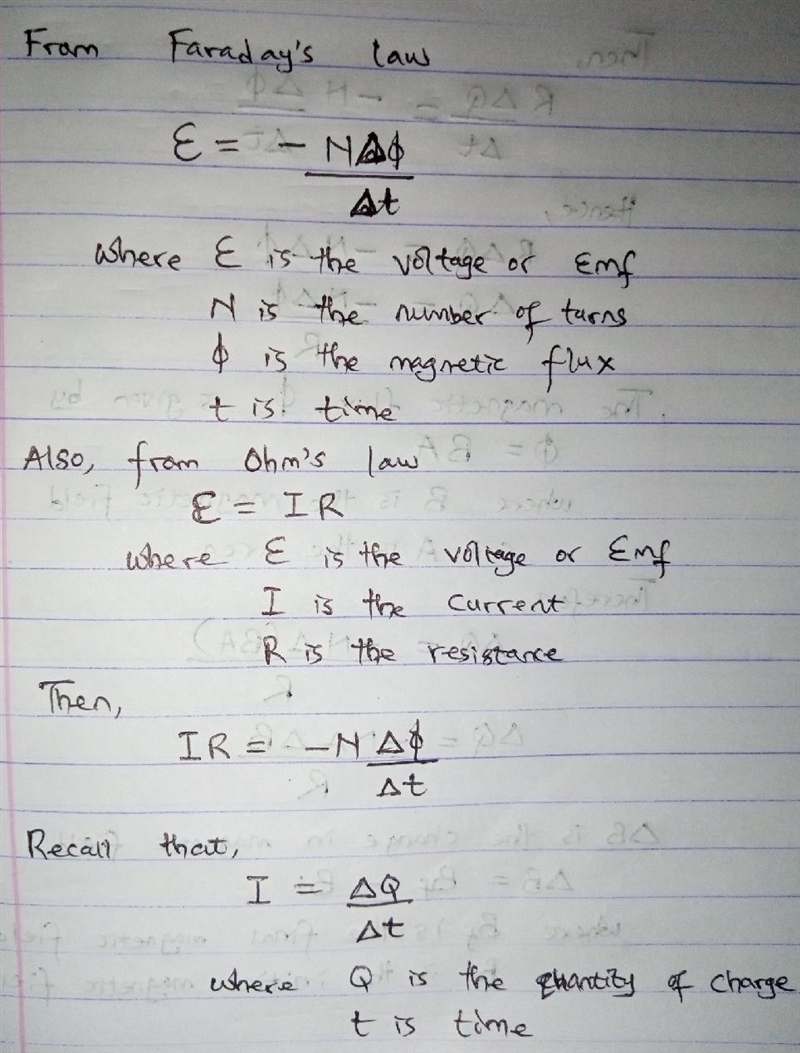 From Faraday's law
Ɛ = - NΔϕ
Δt
where Ɛ is the voltage or Emf
N is the number of turns
ϕ is the magnetic flux
t is time
Also, from Ohm's law
Ɛ = IR
where Ɛ is the voltage or Emf
I is the current
R is the resistance
Then,
IR = -N Δϕ
Δt
Recall that,
I = ΔQ
Δt
where Q is the quantity of charge
t is time